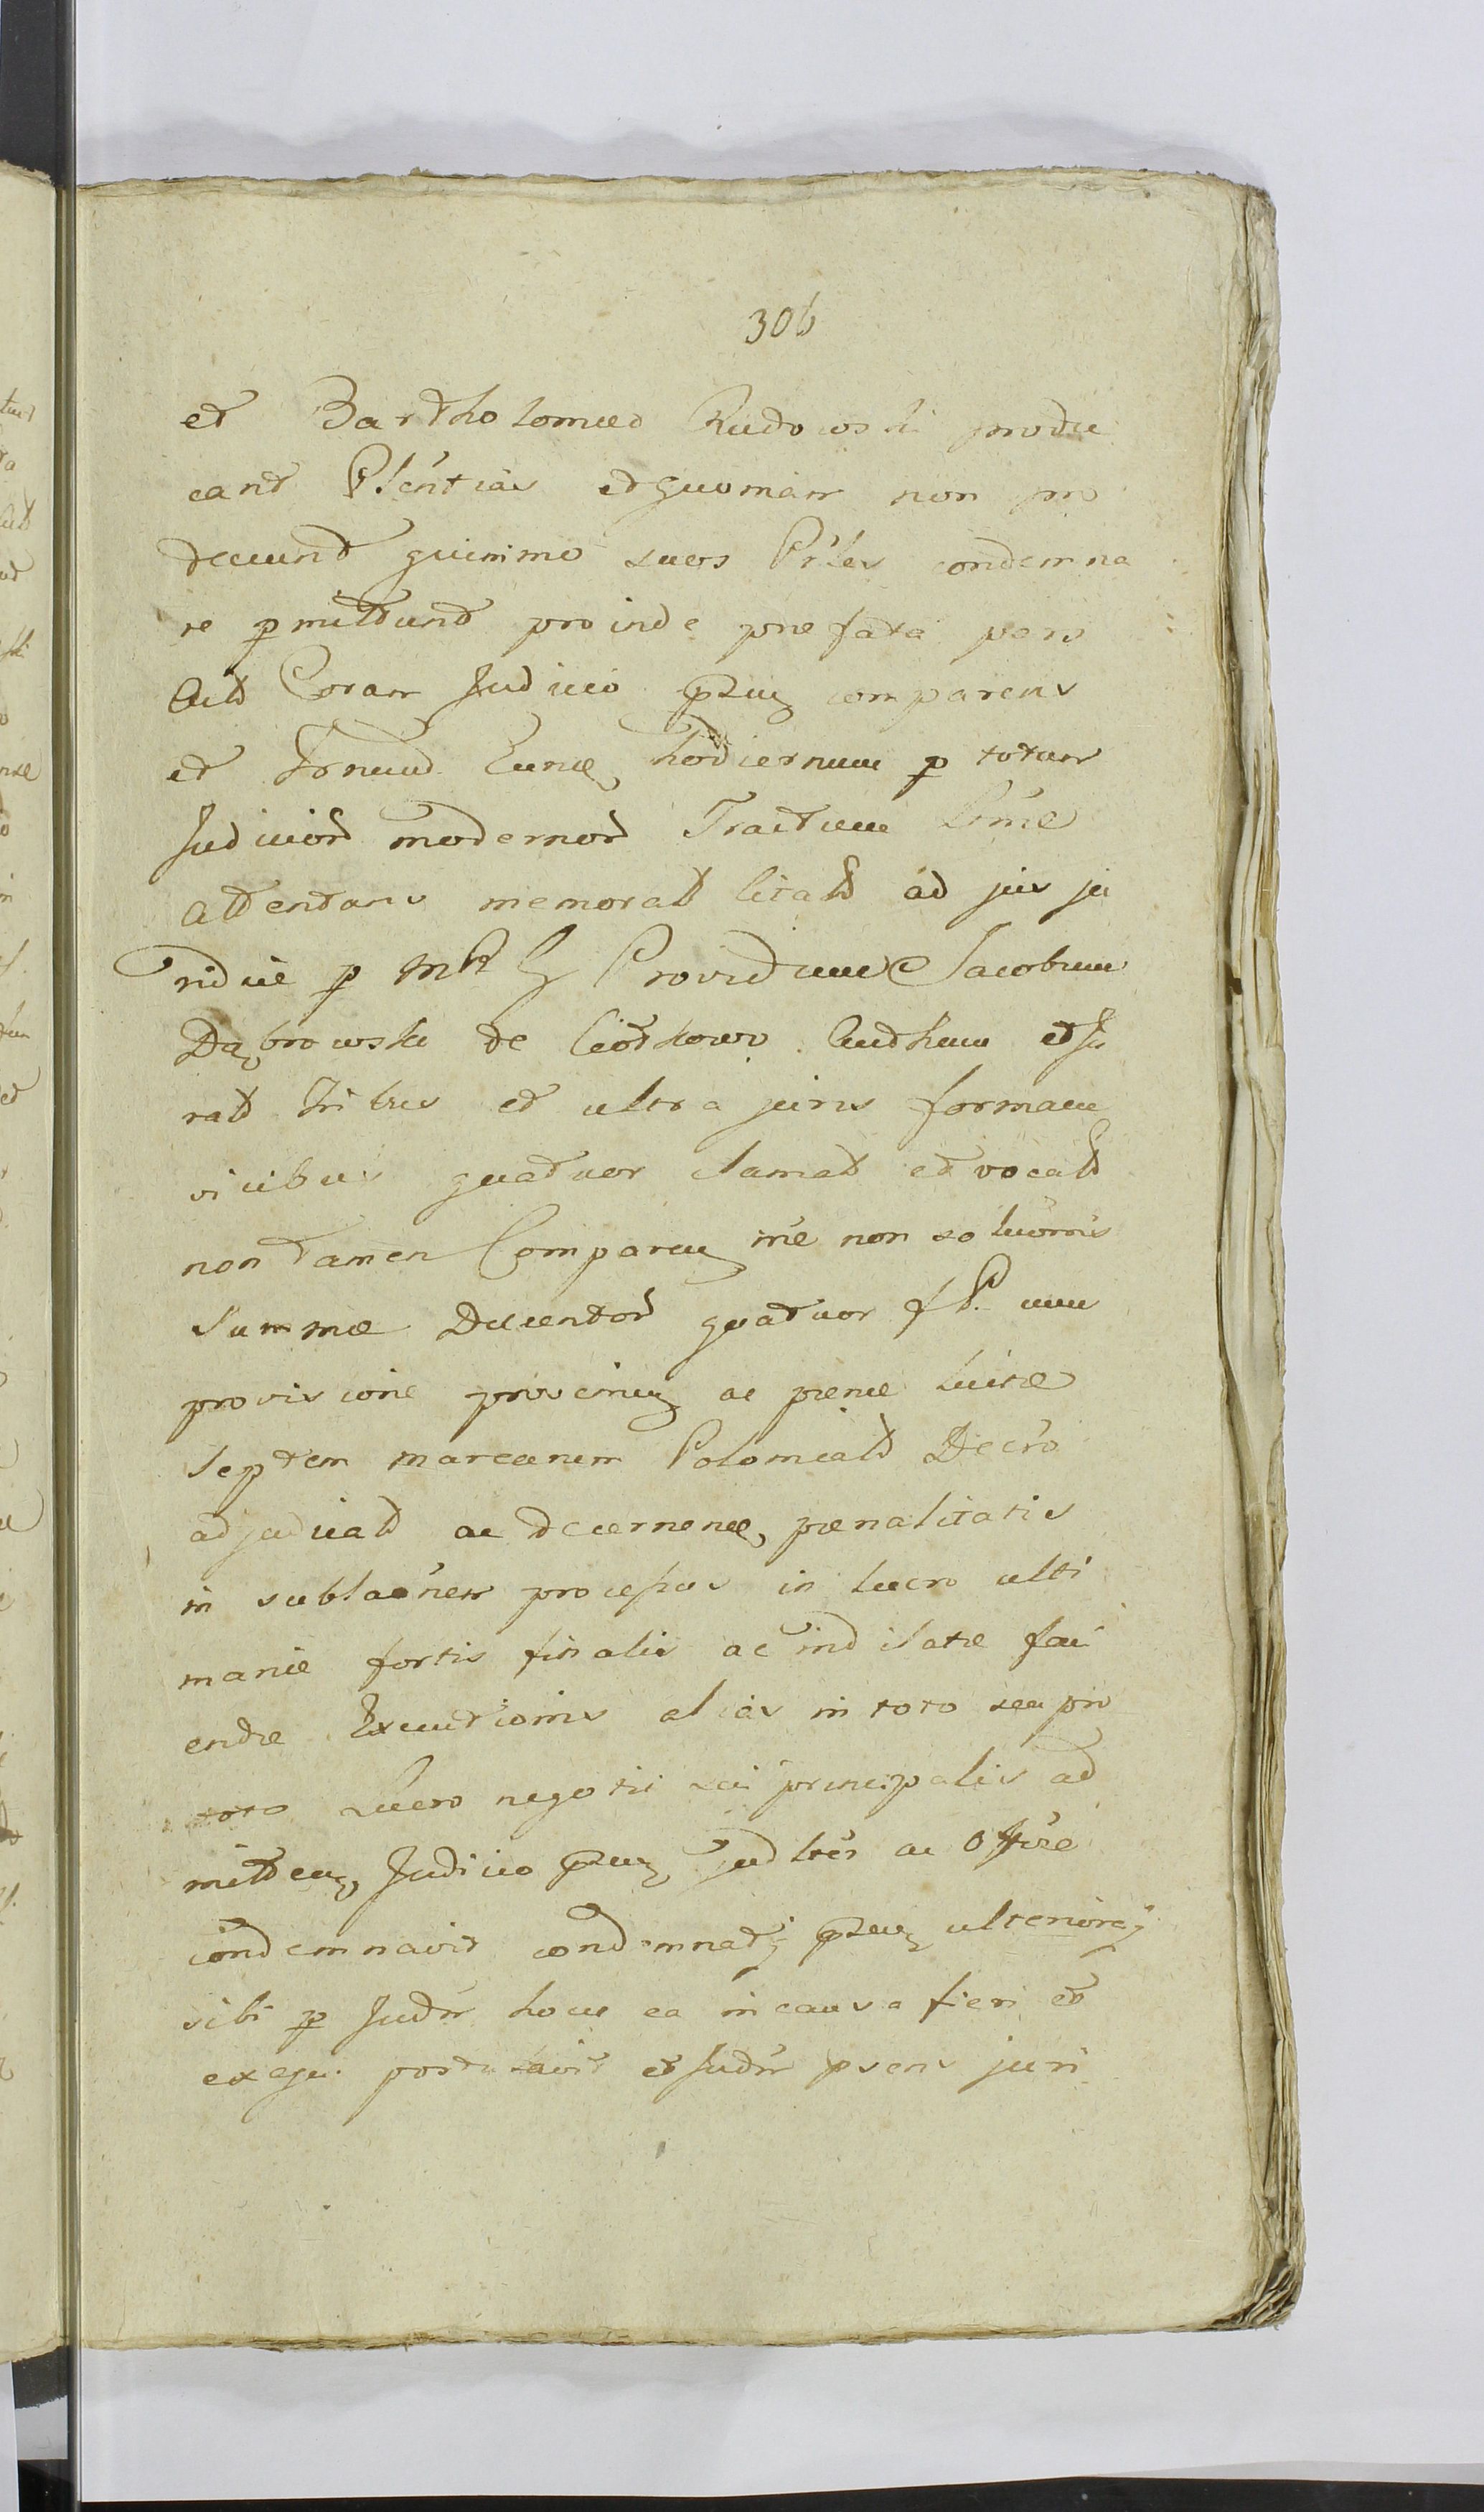 306
et Bartholomeo Rudowski produ
cant Plentias et quoniam non pro
ducund quinimo suos Prles condemna
re pmittund proinde praefata pars
Act Coram Judicio pnti comparens
et Trnum hodiernum p totum
Judicior modernor Tractum Ltme
attentans memorat citat ad jus ju
ridice p Mtr Providum Jacobum
Dąbrowski de Ciotkowo et Ju
rat tribus et ultra juris formam
vicibus quatuor clamat et vocat
non tamen Comparen rne non solucionis
Summae Ducentor quatuor fl P. cum
provisione provenien ac paenae luitae
septem marcarum Polonical Decro
adjudicat ac decernen paenalitatis
in sublationem processus in lucro ulti
mariae fortis finalis ac indilatae faci
endae Executionis alias in toto seu pro
toto Lucro negotii sui principalis ad
mitten Judicio pnti Judlter ac Offose
condemnavit condemnat pnti ulterior
sibi p Judm hocce ea in causa fieri et
exequi postulavit et Judm psens juri